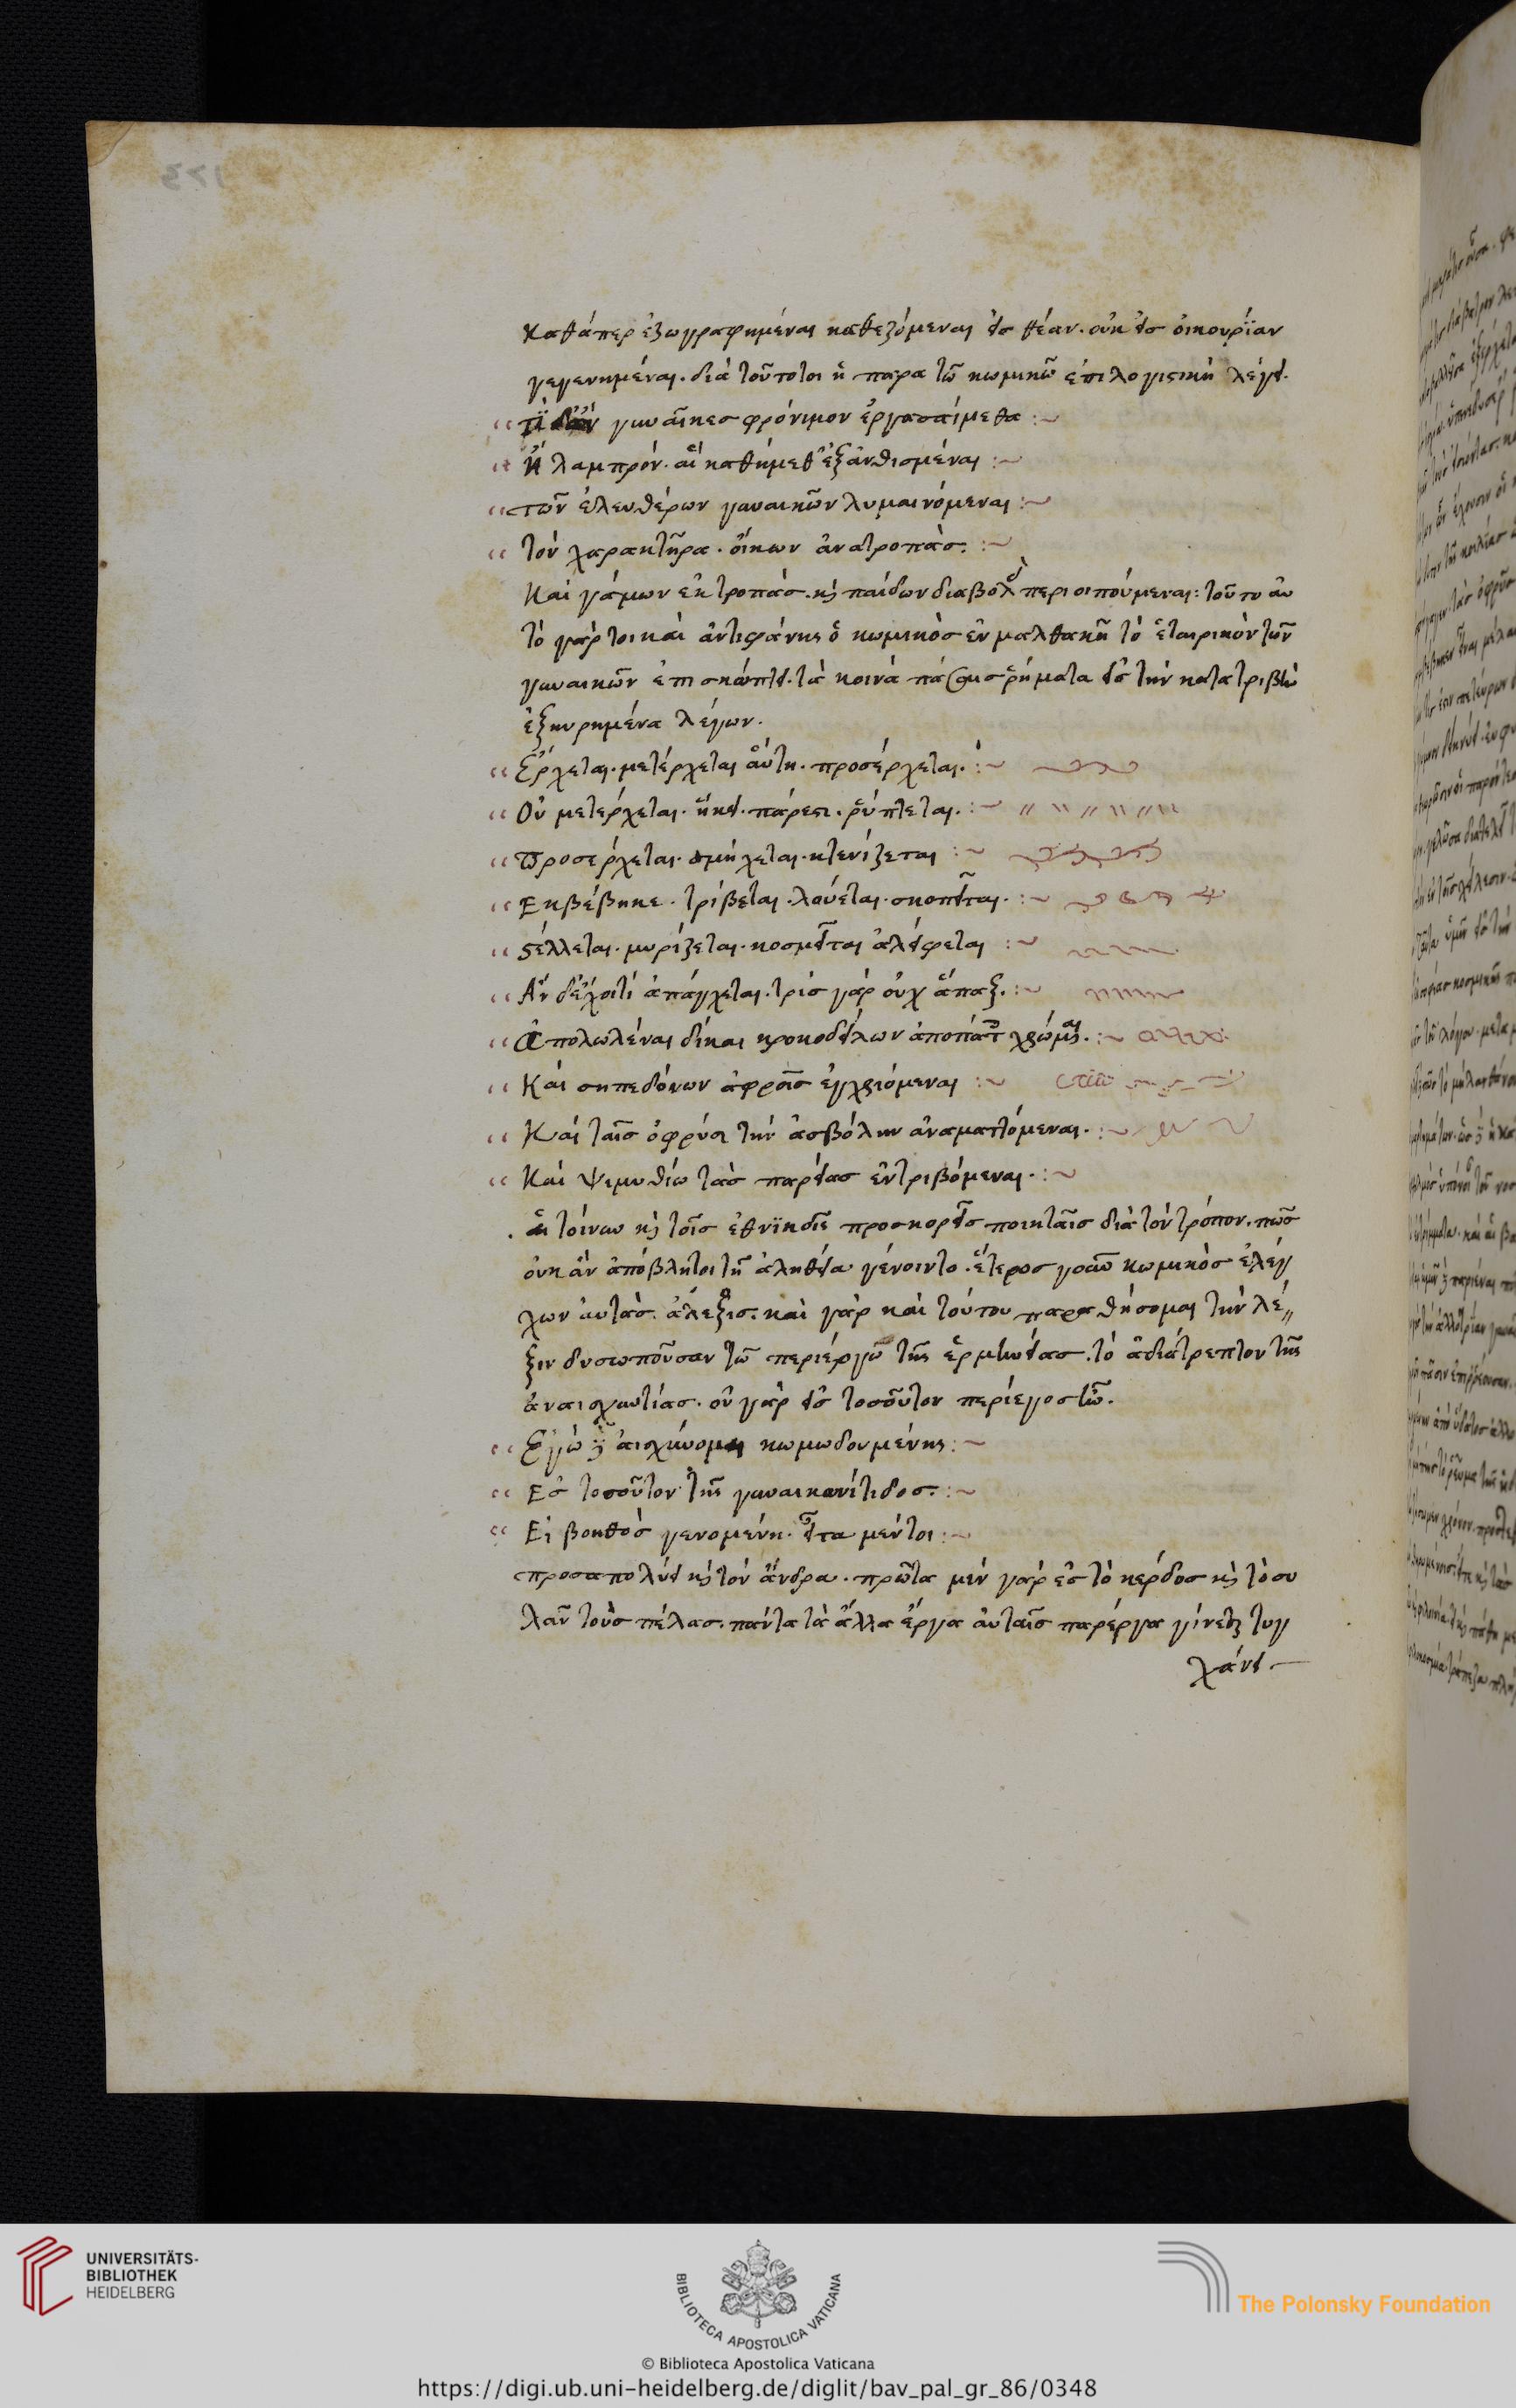 καθάπερ ἐζωγραφημέναι καθεζόμεναι εἰς θέαν. οὐκ εἰς οἰκουρίαν
γεγενημέναι. διὰ τοῦτό τοι ἡ παρα τῶ κωμικῶ ἐπιλογιστικὴ λέγει.
γυναῖκες φρόνιμον ἐργασαίμεθα :~
Ἢ λαμπρόν. αἳ καθήμεθ' ἐξανθισμέναι :~
τῶν ἐλευθέρων γυναικῶν λυμαινόμεναι :~
τὸν χαρακτῆρα. οἴκων ἀνατροπὰς. :~
Καὶ γάμων ἐκτροπάς. κ παίδων διαβολ περιοιπούμεναι: τοῦτο αυ
τὸ γάρ τοι καὶ ἀντιφάνης ὁ κωμικὸς ἐν μαλθακῆ τὸ ἑταιρικὸν τῶν
γυναικῶν ἐπισκώπτει. τὰ κοινὰ ῥήματα εἰς τὴν κατατριβὴν
ἐξηυρημένα λέγων.
Ἔρχεται. μετέρχεται αὕτη. προσέρχεται. :~
Οὐ μετέρχεται. ἥκει. πάρεστι. ῥύπτεται. :~
Προσέρχεται. σμήχεται. κτενίζεται :~
Εκβέβηκε. τρίβεται. λούεται. σκοπεῖται. :~
στέλλεται. μυρίζεται. κοσμεῖται ἀλείφεται :~
Ἂν δ' ἔχοι τί ἀπάγχεται. τρὶς γὰρ οὐχ ἅπαξ. :~
Ἀπολωλέναι δίκαι κροκοδείλων ἀποπάτ χρώμ. :~
Καὶ σηπεδόνων ἀφροῖς ἐγχριόμεναι :~
Καὶ ταῖς ὀφρύσι τὴν ἀσβόλην ἀναματτόμεναι. :~
Καὶ ψιμυθίω τὰς παρειὰς ἐντριβόμεναι. :~
αἱ τοίνυν κ τοῖς ἐθνϊκοῖς προσκορεῖς ποιηταῖς διὰ τὸν τρόπον. πῶς
οὐκ ἂν ἀπόβλητοι τῆ ἀληθεία γένοιντο. ἕτερος γοῦν κωμικὸς ἐλέγ
χων αὐτὰς. ἄλεξις. καὶ γὰρ καὶ τούτου παραθήσομαι τὴν λέ
ξιν δυσωποῦσαν τῶ περιέργω τῆς ἑρμηνείας. τὸ ἀδιάτρεπτον τῆς
ἀναισχυντίας. οὐ γὰρ εἰς τοσοῦτον περίεγος τῶ.
Ἐγὼ δ' αισχύνομαι κωμωδουμένης :~
Ες τοσοῦτον τῆς γυναικωνίτιδος. :~
Εἰ βοηθὸς γενομένη. εἶτα μέντοι :~
προσαπολύει κ τὸν ἄνδρα. πρῶτα μὲν γὰρ ἐς τὸ κέρδος κ τὸ συ
λαν τοὺς πέλας. πάντα τὰ ἄλλα ἔργα αὐταῖς πάρεργα γίνεται τυγ
χάνει
UNIVERSITÄTS-
BIBLIOTHEK
HEIDELBERG
BIBLIOTECA APOSTOLICA VATICANA
The Polonsky Foundation
© Biblioteca Apostolica Vaticana
https://digi.ub.uni-heidelberg.de/diglit/bav_pal_gr_86/0348